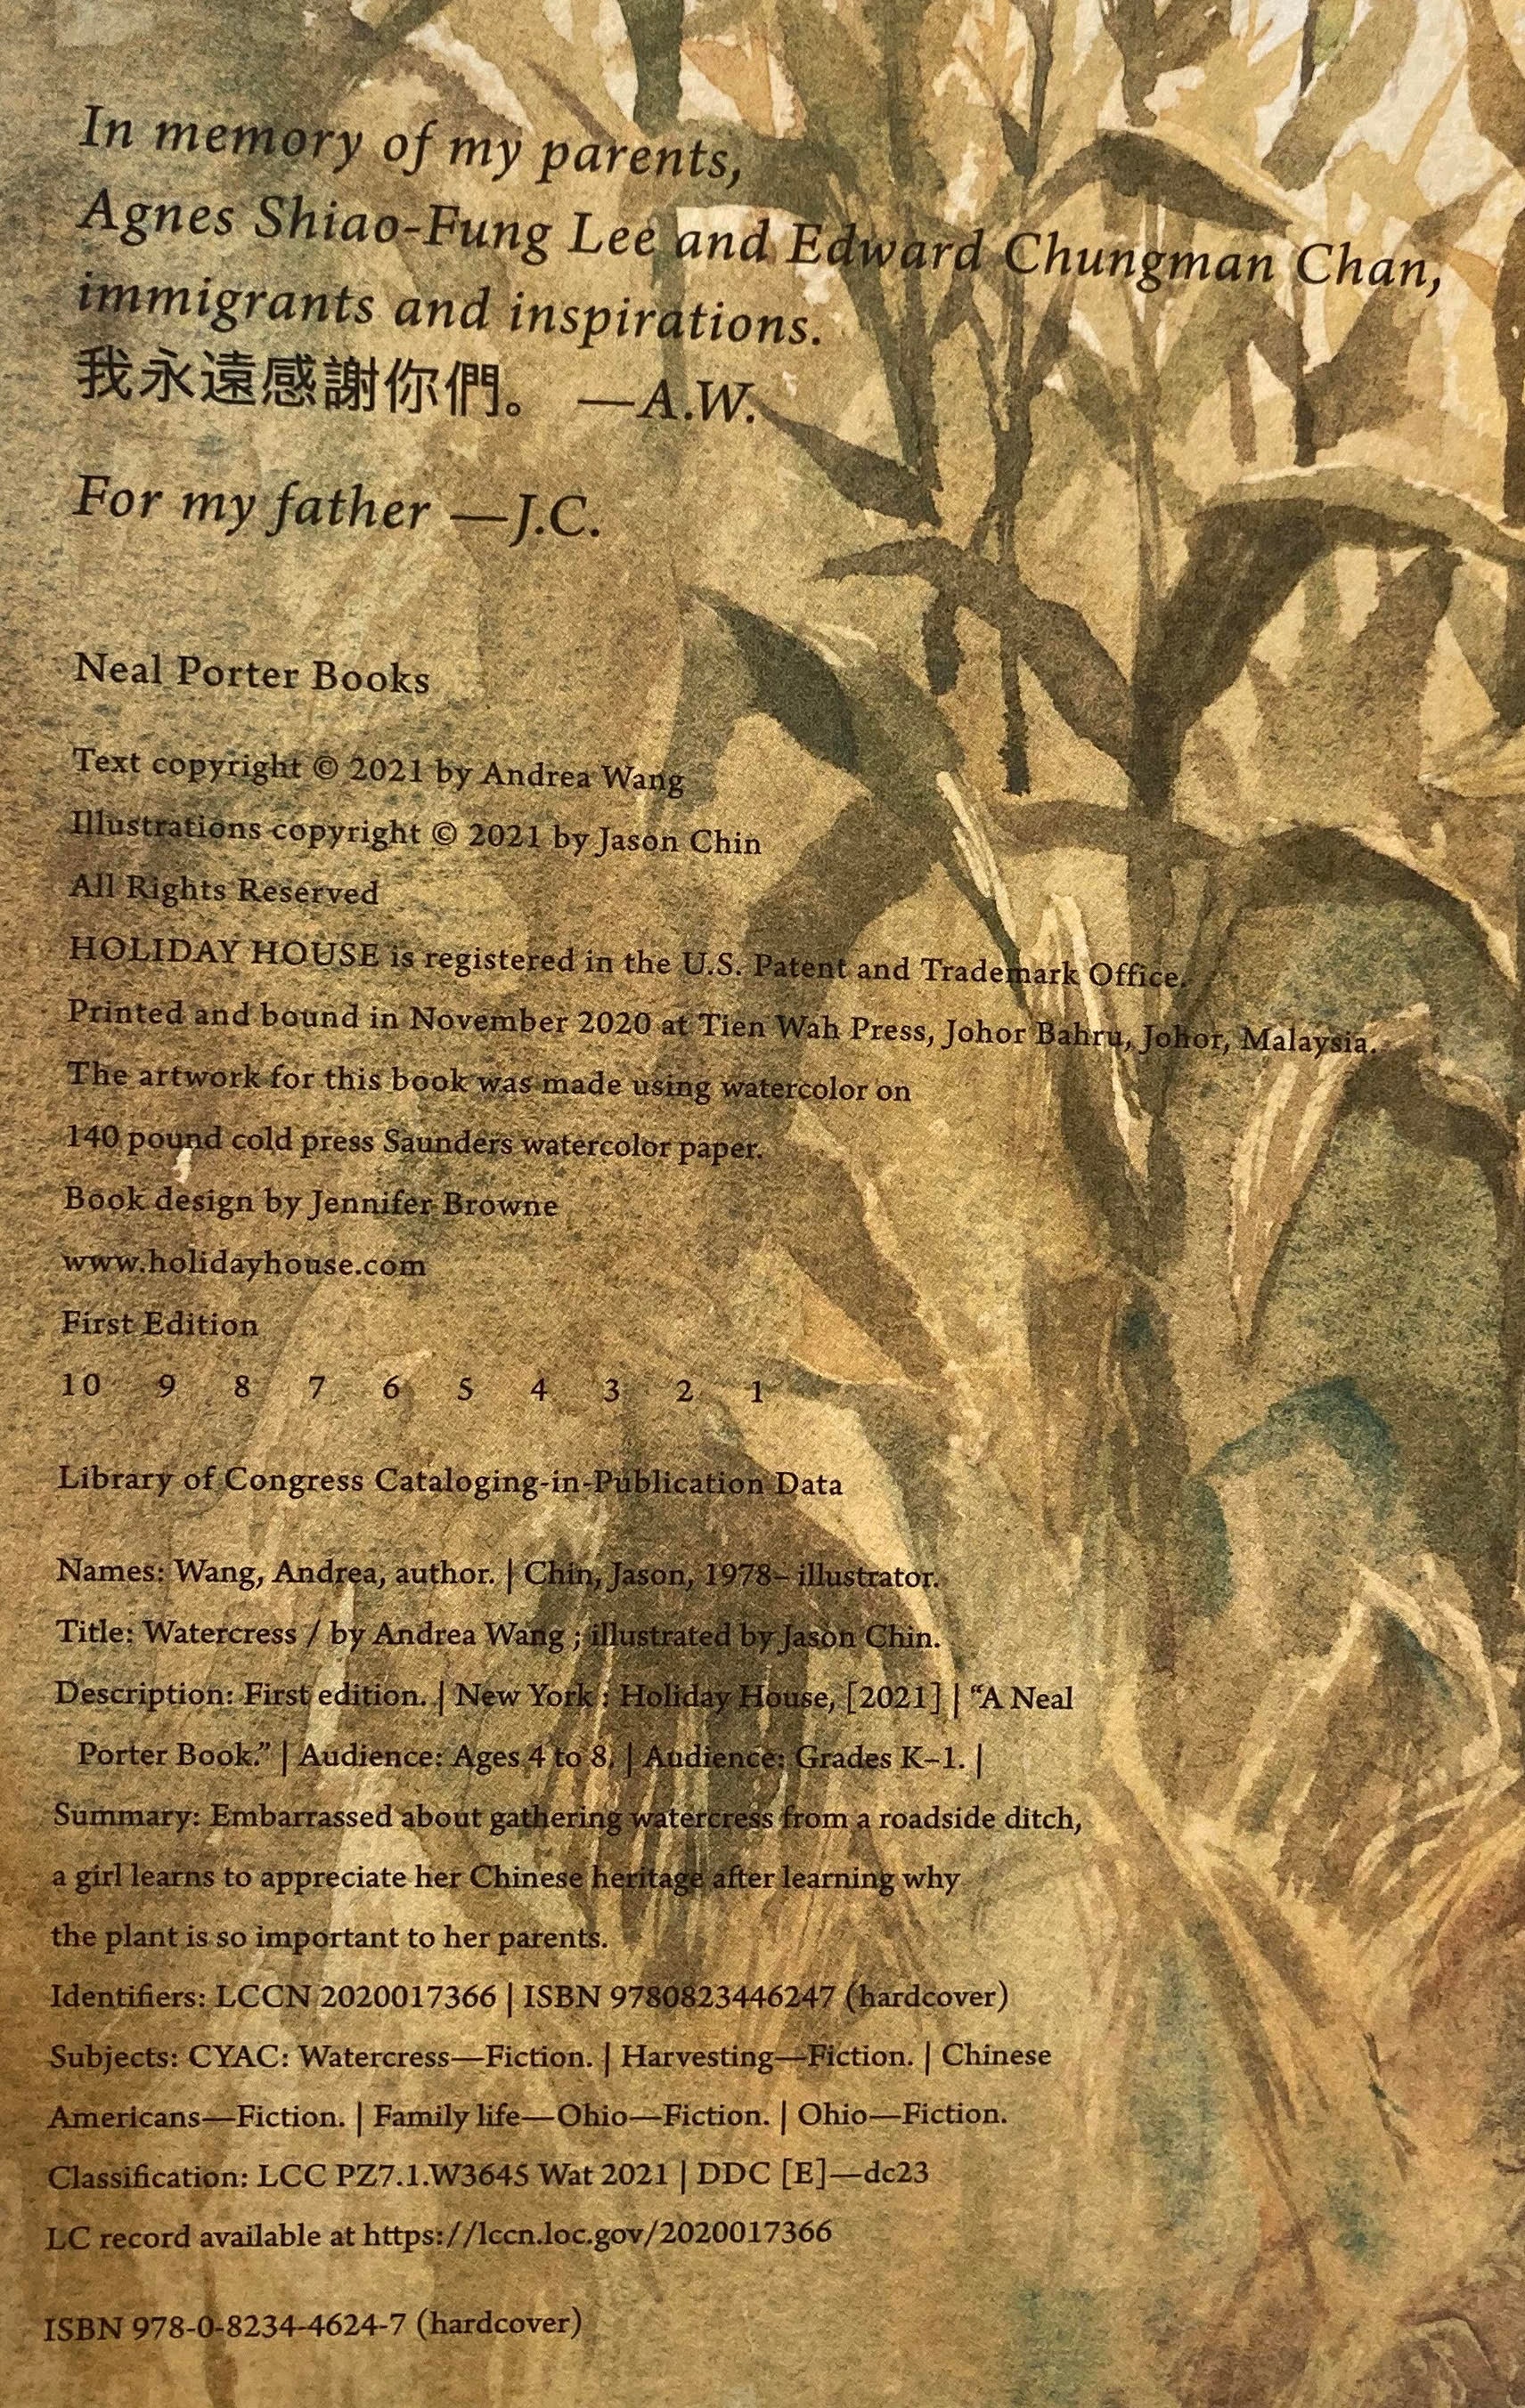 In memory of my parents,
Agnes Shiao-Fung Lee and Edward Chungman Chan,
immigrants and inspirations.
我永遠感謝你們。 —A.W.
For my father —J.C.
Neal Porter Books
Text copyright © 2021 by Andrea Wang
Illustrations copyright © 2021 by Jason Chin
All Rights Reserved
HOLIDAY HOUSE is registered in the U.S. Patent and Trademark Office.
Printed and bound in November 2020 at Tien Wah Press, Johor Bahru, Johor, Malaysia.
The artwork for this book was made using watercolor on
140 pound cold press Saunders watercolor paper.
Book design by Jennifer Browne
www.holidayhouse.com
First Edition
10 9 8 7 6 5 4 3 2 1
Library of Congress Cataloging-in-Publication Data
Names: Wang, Andrea, author. | Chin, Jason, 1978– illustrator.
Title: Watercress / by Andrea Wang ; illustrated by Jason Chin.
Description: First edition. | New York : Holiday House, [2021] | “A Neal
Porter Book.” | Audience: Ages 4 to 8. | Audience: Grades K–1. |
Summary: Embarrassed about gathering watercress from a roadside ditch,
a girl learns to appreciate her Chinese heritage after learning why
the plant is so important to her parents.
Identifiers: LCCN 2020017366 | ISBN 9780823446247 (hardcover)
Subjects: CYAC: Watercress—Fiction. | Harvesting—Fiction. | Chinese
Americans—Fiction. | Family life—Ohio—Fiction. | Ohio—Fiction.
Classification: LCC PZ7.1.W3645 Wat 2021 | DDC [E]—dc23
LC record available at https://lccn.loc.gov/2020017366
ISBN 978-0-8234-4624-7 (hardcover)